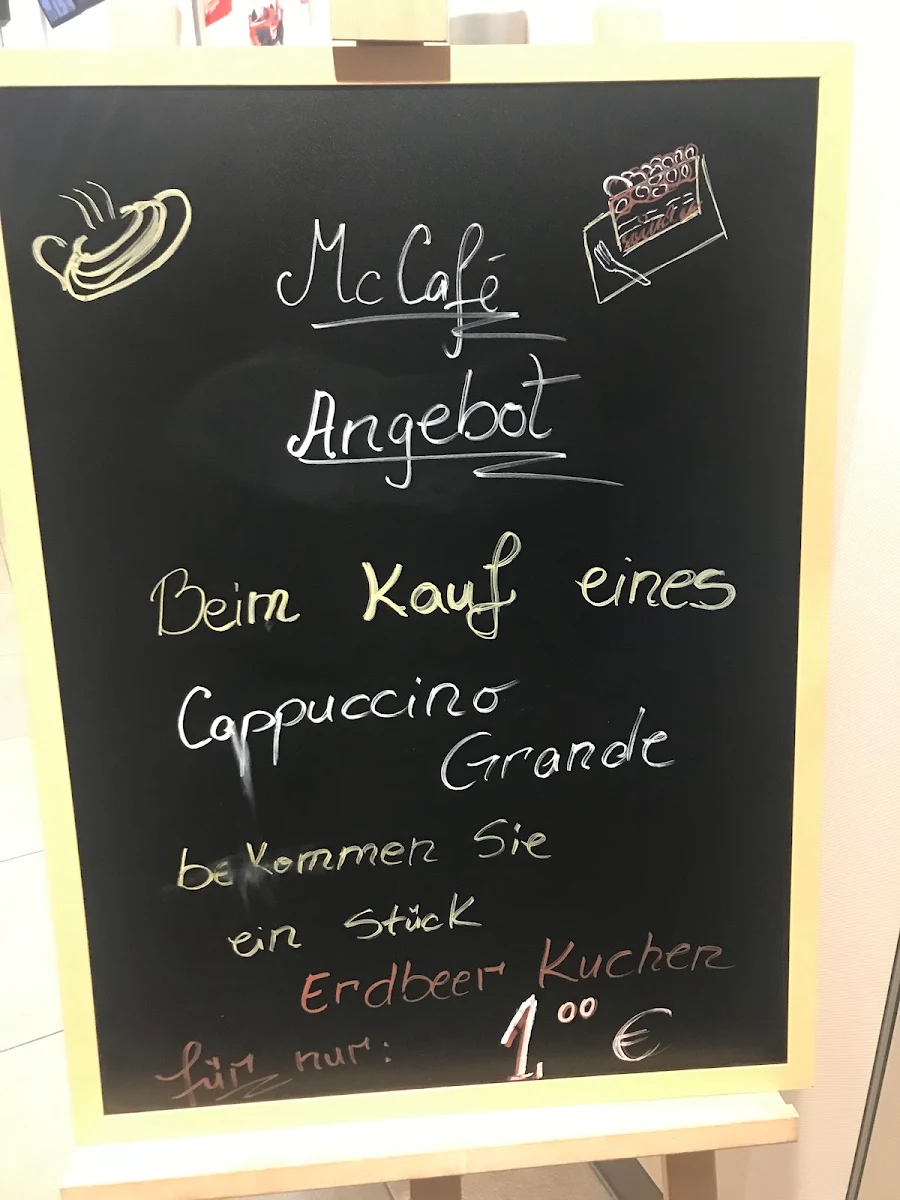 McCafé
Angebot
Beim Kauf eines
Cappuccino
Grande
bekommen Sie
ein Stück
Erdbeer Kuchen
für nur: 1.00 €